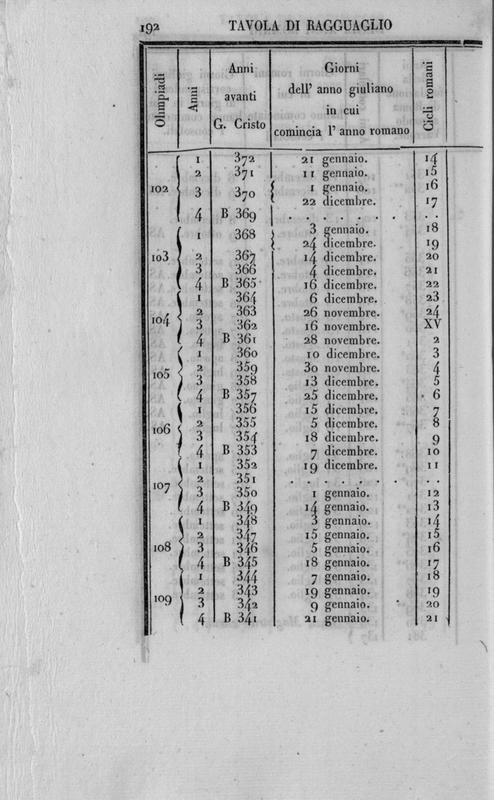 192 TAVOLA DI RAGGUAGLIO
Olimpiadi | Anni | Anni avanti G. Cristo | Giorni dell' anno giuliano in cui comincia l' anno romano | Cicli romani
102 1 372 21 gennaio. 14
2 371 11 gennaio. 15
3 370 1 gennaio. 16
22 dicembre. 17
4 B 369 . . . . . . . . .
103 1 368 3 gennaio. 18
24 dicembre. 19
2 367 14 dicembre. 20
3 366 4 dicembre. 21
4 B 365 16 dicembre. 22
104 1 364 6 dicembre. 23
2 363 26 novembre. 24
3 362 16 novembre. XV
4 B 361 28 novembre. 2
105 1 360 10 dicembre. 3
2 359 30 novembre. 4
3 358 13 dicembre. 5
4 B 357 25 dicembre. 6
106 1 356 15 dicembre. 7
2 355 5 dicembre. 8
3 354 18 dicembre. 9
4 B 353 7 dicembre. 10
107 1 352 19 dicembre. 11
2 351 . . . . . . . . .
3 350 1 gennaio. 12
4 B 349 14 gennaio. 13
108 1 348 3 gennaio. 14
2 347 15 gennaio. 15
3 346 5 gennaio. 16
4 B 345 18 gennaio. 17
109 1 344 7 gennaio. 18
2 343 19 gennaio. 19
3 342 9 gennaio. 20
4 B 341 21 gennaio. 21